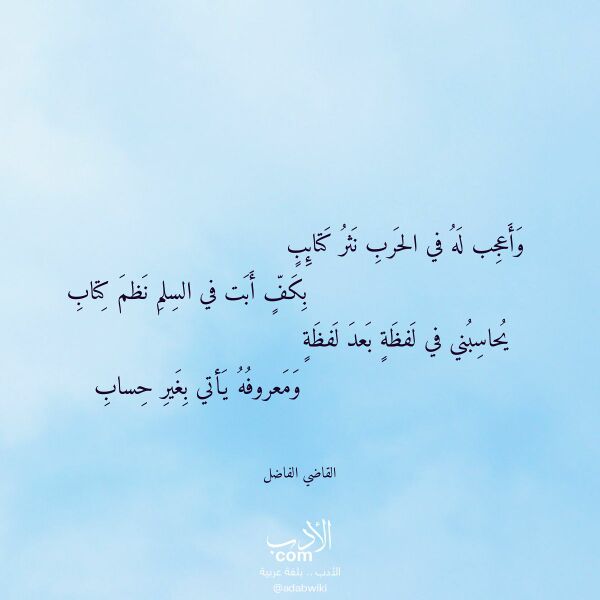 وَأَعجِب لَهُ في الحَربِ نَثرُ كَتائِبٍ
بِكَفٍّ أَبَت في السِلمِ نَظمَ كِتابِ
يُحاسِبُني في لَفظَةٍ بَعدَ لَفظَةٍ
وَمَعروفُهُ يَأتي بِغَيرِ حِسابِ
القاضي الفاضل
الأدب
.com
الأدب .. بلغة عربية
@adabwiki